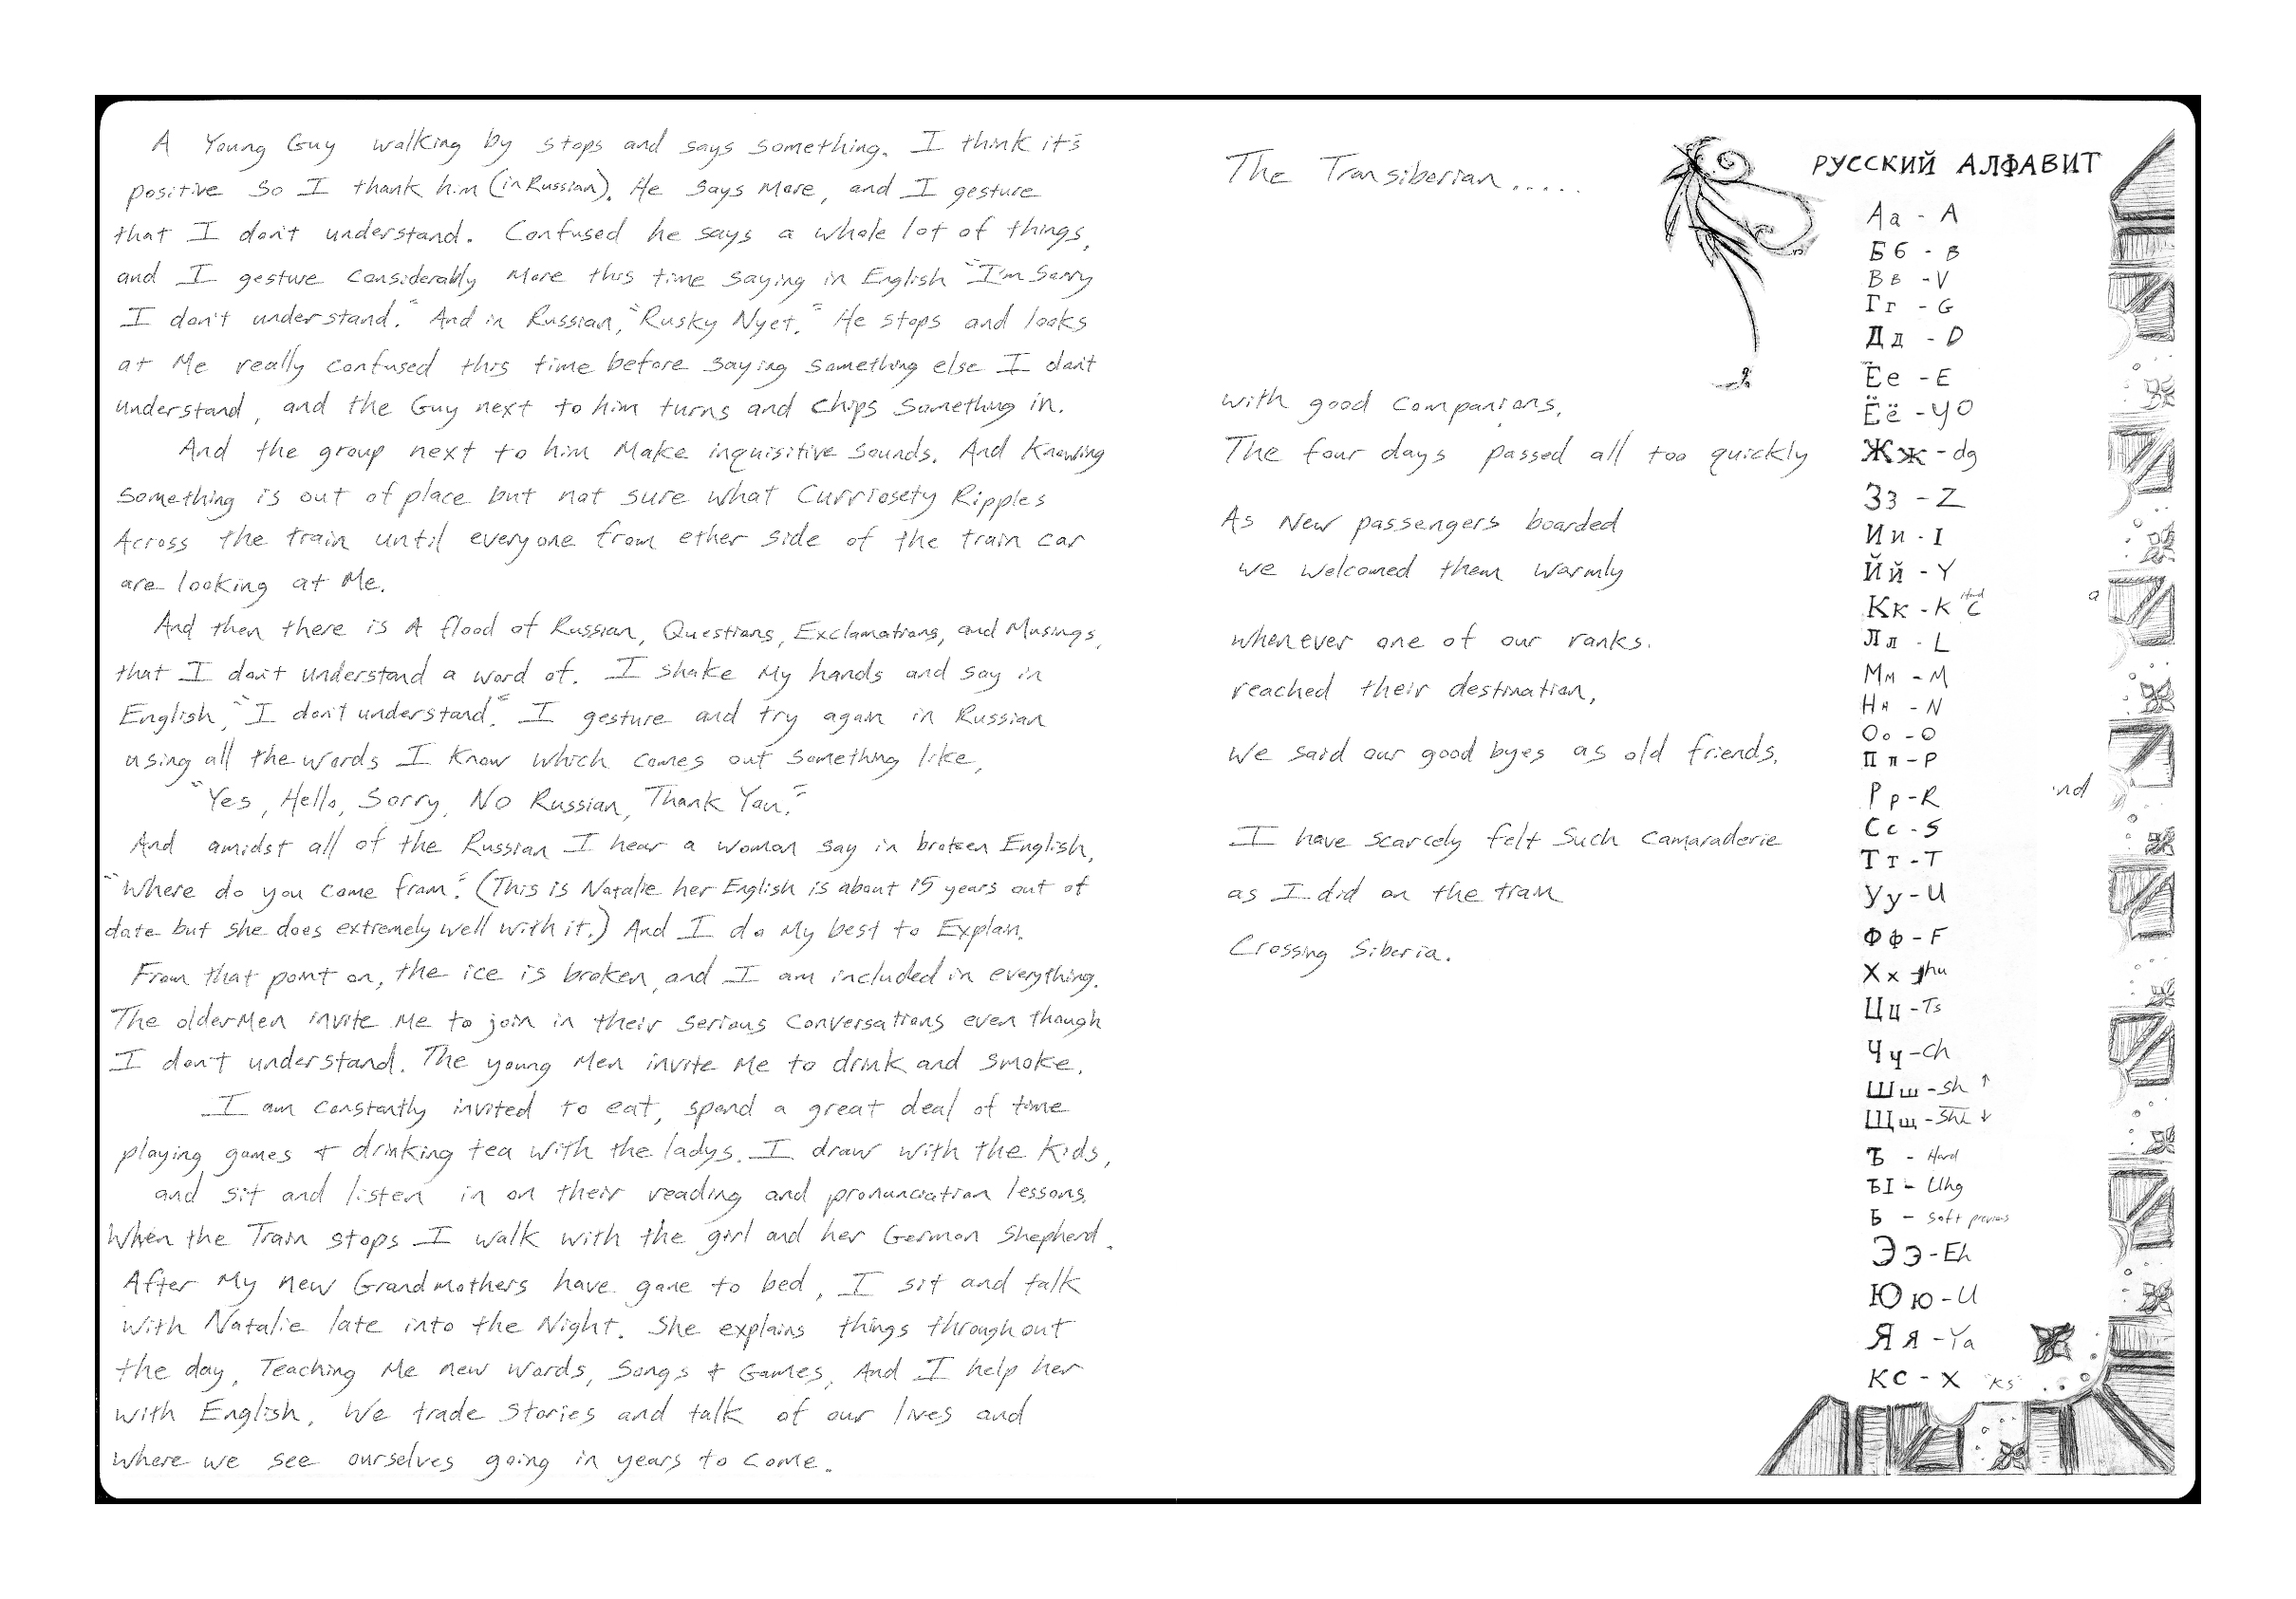 A Young Guy walking by stops and says something. I think it's
positive so I thank him (in Russian). He says More, and I gesture
that I don't understand. Confused he says a whole lot of things,
and I gesture considerably More this time saying in English "I'm Sorry
I don't understand." And in Russian, "Rusky Nyet." He stops and looks
at Me really confused this time before saying something else I don't
understand, and the Guy next to him turns and chips something in.
And the group next to him Make inquisitive sounds. And Knowing
Something is out of place but not sure what Curriosety Ripples
Across the train until everyone from ether side of the train car
are looking at Me.
And then there is A flood of Russian, Questions, Exclamations, and Musings,
that I don't understand a word of. I shake My hands and say in
English, "I don't understand." I gesture and try again in Russian
using all the words I Know which comes out something like,
"Yes, Hello, Sorry, No Russian, Thank You."
And amidst all of the Russian I hear a woman say in broken English,
"Where do you come from". (This is Natalie her English is about 15 years out of
date but she does extremely well with it.) And I do My best to Explain.
From that point on, the ice is broken, and I am included in everything.
The older Men invite Me to join in their serious conversations even though
I don't understand. The young Men invite Me to drink and smoke.
I am constantly invited to eat, spend a great deal of time
playing games + drinking tea with the ladys. I draw with the Kids,
and sit and listen in on their reading and pronunciation lessons.
When the Train stops I walk with the girl and her German Shepherd.
After My new Grandmothers have gone to bed, I sit and talk
with Natalie late into the Night. She explains things throughout
the day, Teaching Me new words, Songs + Games, And I help her
with English. We trade Stories and talk of our lives and
where we see ourselves going in years to come.
The Transiberian.....
with good companions,
The four days passed all too quickly
As New passengers boarded
we welcomed them warmly
whenever one of our ranks.
reached their destination,
We said our good byes as old friends.
I have scarcely felt Such camaraderie
as I did on the train
Crossing Siberia.
РУССКИЙ АЛФАВИТ
Аа - A
Бб - B
Вв - V
Гг - G
Дд - D
Ее - E
Ёё - YO
Жж - dg
Зз - Z
Ии - I
Йй - Y
Кк - K Hard C
Лл - L
Мм - M
Нн - N
Оо - O
Пп - P
Рр - R
Сс - S
Тт - T
Уу - U
Фф - F
Хх - hu
Цц - Ts
Чч - ch
Шш - sh ↑
Щщ - ↓
Ъ - Hard
Ы - Uhg
Ь - Soft previous
Ээ - Eh
Юю - U
Яя - Ya
КС - X "KS"
a
nd